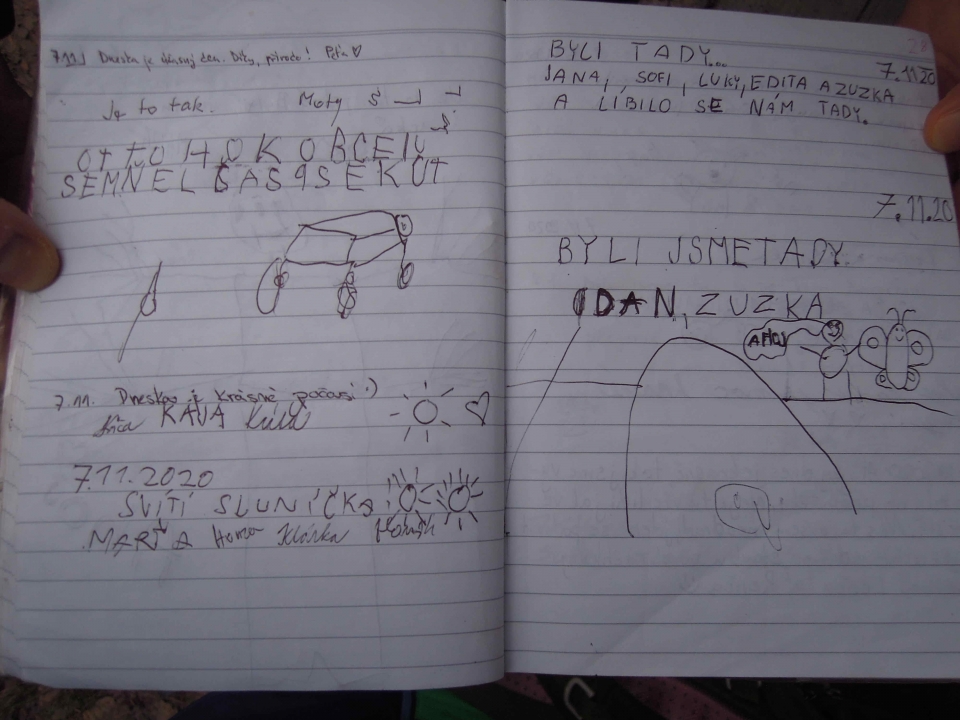 7.11. Dneska je krásný den. Díky, přírodo! Péťa
Je to tak. Moty
OTTO H O K OBCEIU
SEMNEL ČAS 9 SEKUT
7.11. Dneska je krásné počasí :)
KÁVA
7.11.2020
SVÍTÍ SLUNÍČKO
MARŤA Klárka
28
BYLI TADY... 7.11.20
JANA, SOFI, LUKY, EDITA A ZUZKA
A LÍBILO SE NÁM TADY.
7.11.20
BYLI JSMETADY.
DAN, ZUZKA
AHOJ